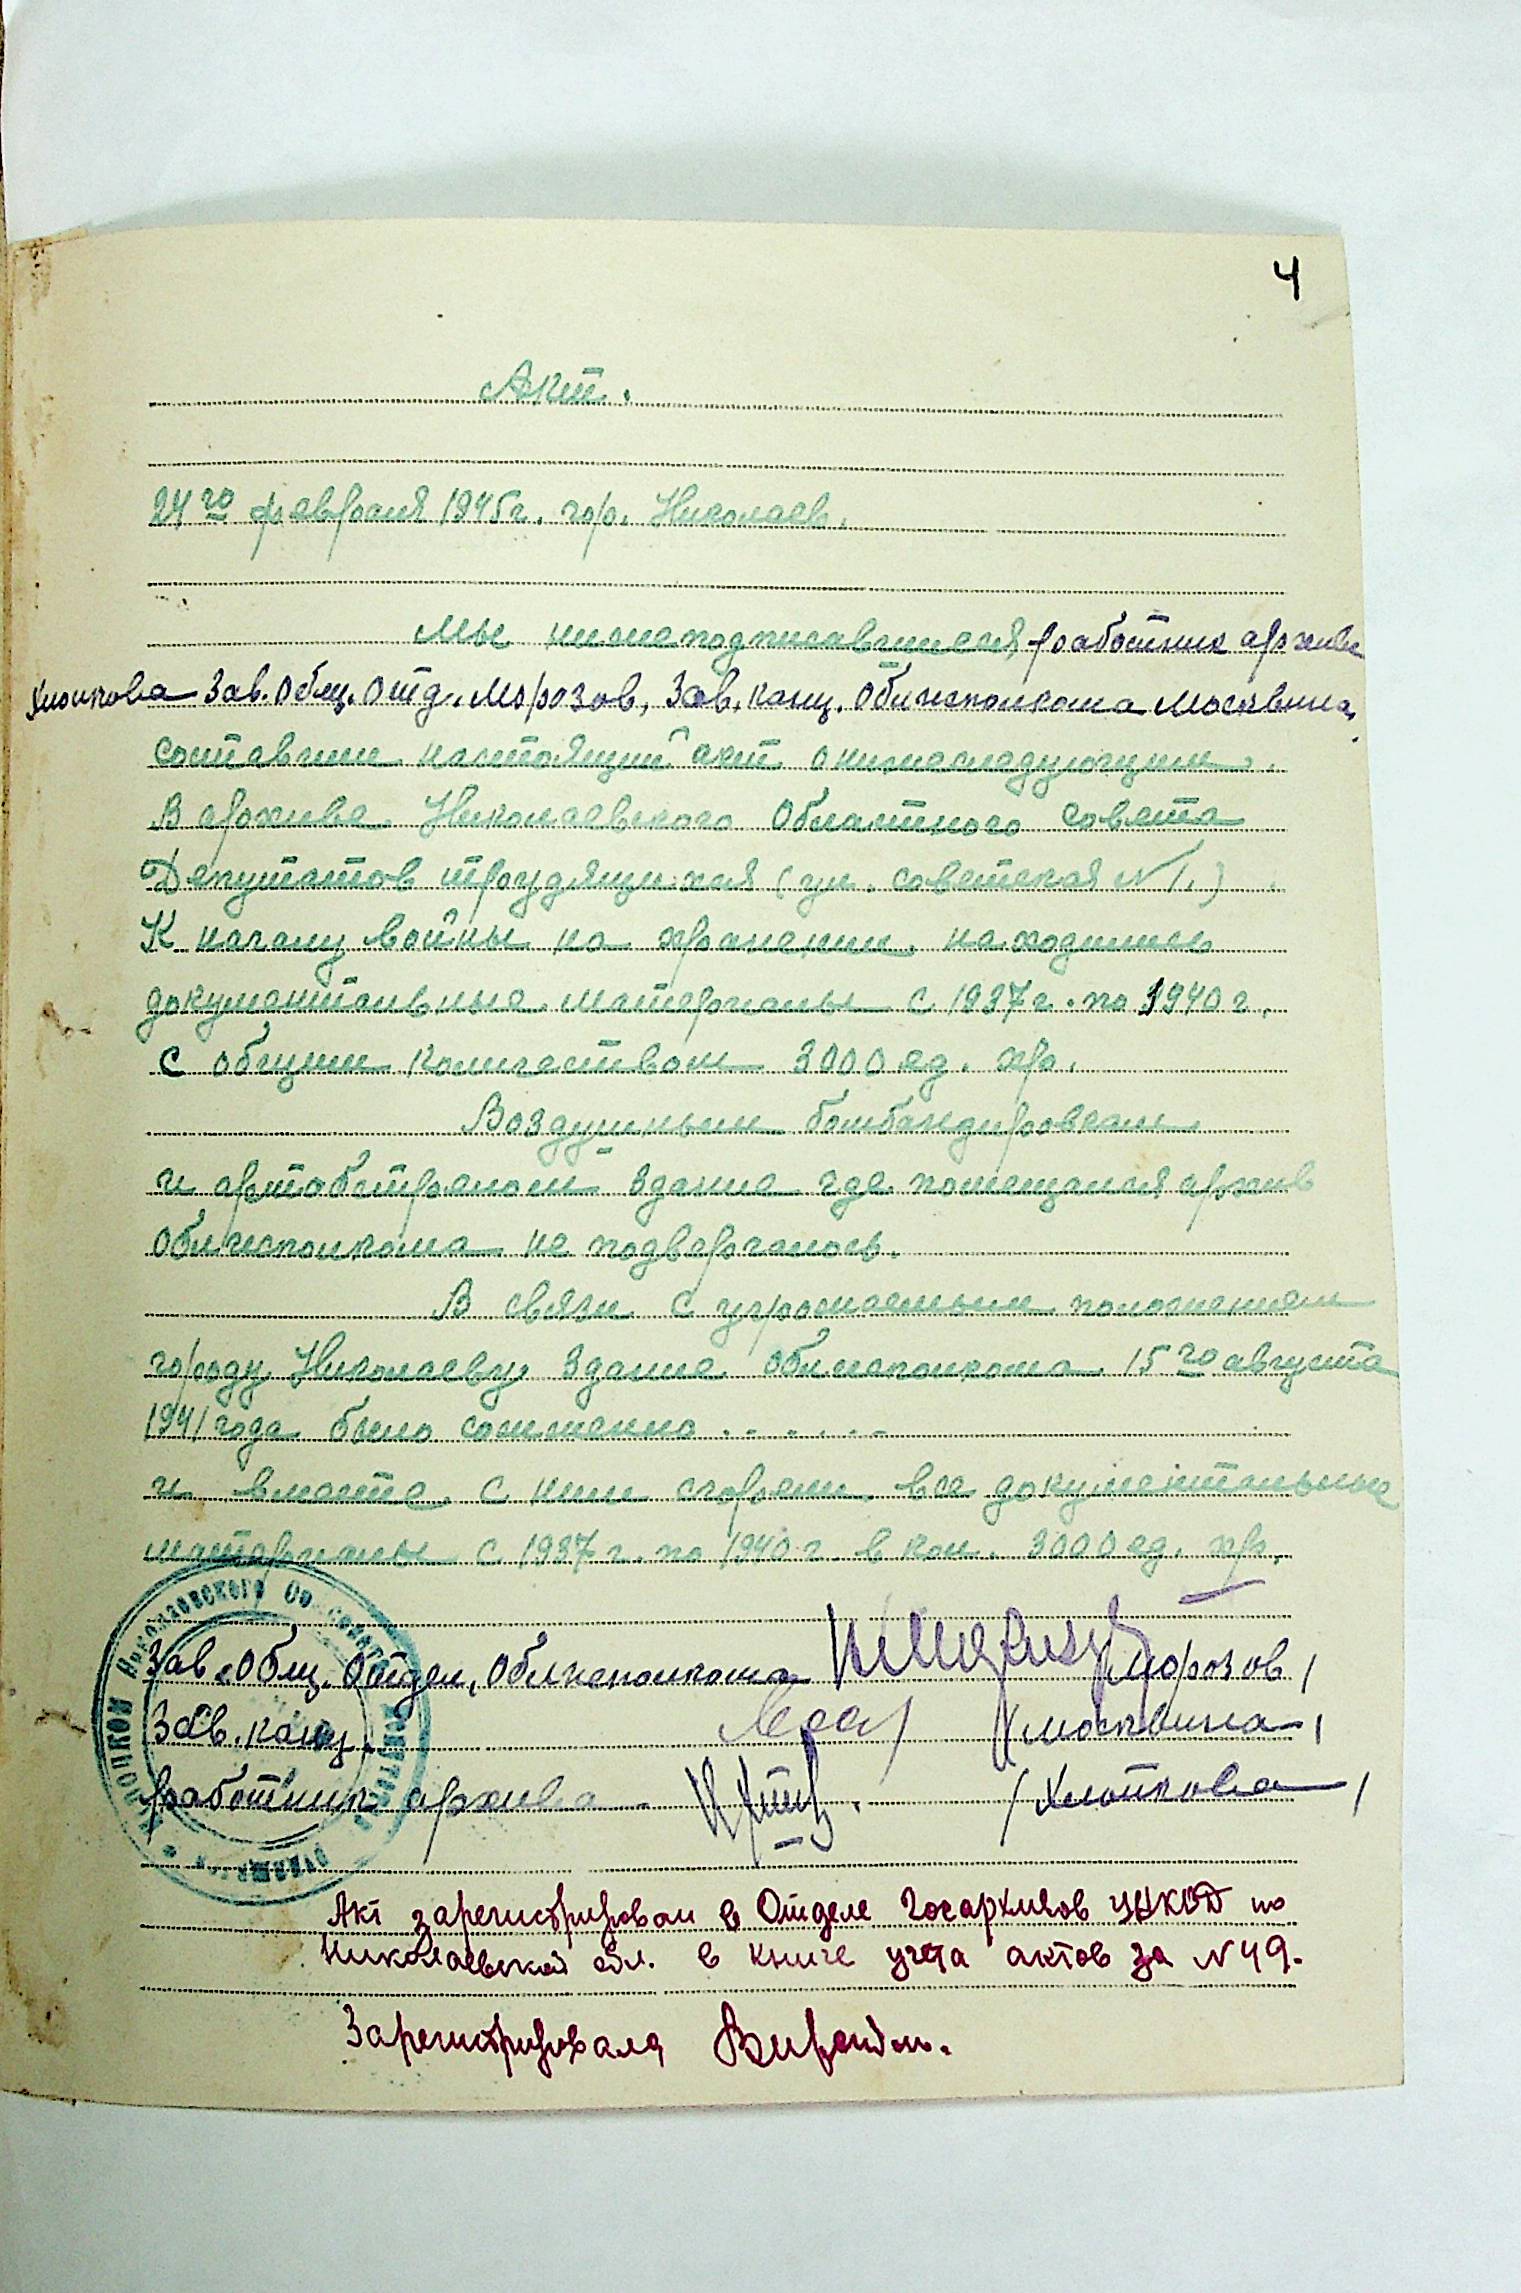 4
Акт.
24го февраля 1945г. гор. Николаев.
Мы нижеподписавшиеся работник архива
Хлопкова Зав. Общ. Отд. Морозов, Зав. канц. Облисполкома Москвина,
составили настоящий акт о нижеследующим.
В архиве Николаевского Областного совета
Депутатов трудящихся (ул. советская №1.)
К началу войны на хранении находились
документальные материалы с 1937 г. по 1940 г.
с общим количеством 3000 ед. хр.
Воздушным бомбандировкам
и артобстрелам здание где помещался архив
Облисполкома не подвергалось.
В связи с угрожаемым положением
городу Николаеву здание облисполкома 15го августа
1941 года было сожженно . . . . . .
и вместе с ним сгорели все документальные
материалы с 1937 г. по 1940 г. в кол. 3000 ед. хр.
Зав. Общ. Отдел, Облисполкома Морозов /
Зав. канц. / Москвина /
работник архива / Хлопкова /
Акт зарегистрирован в Отделе Госархивов УНКВД по
Николаевской обл. в книге учета актов за №49.
Зарегистрировала